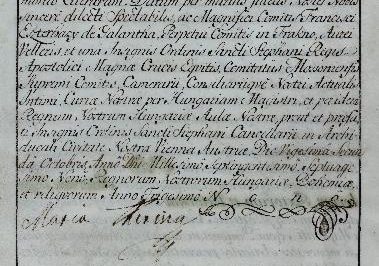 nostrorum Clenodium. Datum per manus fidelis Nostri Nobis
sincere dilecti Spectabilis, ac Magnifici Comitis Francisci
Eszterházy de Galantha, Perpetui Comitis in Frakno, Aurei
Velleris et una Insignis Ordinis Sancti Stephani Regis
Apostolici Magnæ Crucis Equitis, Comitatus Mosoniensis
Supremi Comitis, Camerarii, Consiliariique Nostri Actualis
Intimi, Curiæ Nostræ per Hungariam Magistri, et per idem
Regnum Nostrum Hungariæ Aulæ Nostræ, prout et præfa-
ti Insignis Ordinis Sancti Stephani Cancellarii in Archi-
Ducali Civitate Nostra Vienna Austriæ Die Vigesima Secun-
da Octobris, Anno Dni Millesimo Septingentesimo, Septuage-
simo Nono, Regnorum Nostrorum Hungariæ, Bohemiæ,
et reliquorum Anno Trigesimo N o n o
Maria Theresia